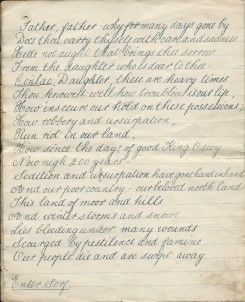 Father, father why for many days gone by
Does thou carry thyself with care and sadness
Hide not aught that brings thee sorrow
From the daughter who is dear to thee
Senlac. Daughter, these are heavy times
Thou knowest well how troubled is our life,
How insecure our hold on these possessions,
How robbery and usurpation,
Run riot in our land,
How since the days of good King Oswy
Now nigh 200 years
Sedition and usurpation have gone hand in hand
And our poor country - our beloved north land
This land of moor and hills
And winter storms and snow:
Lies bleeding under many wounds
Scourged by pestilence and famine
Our people die and are swept away
Enter